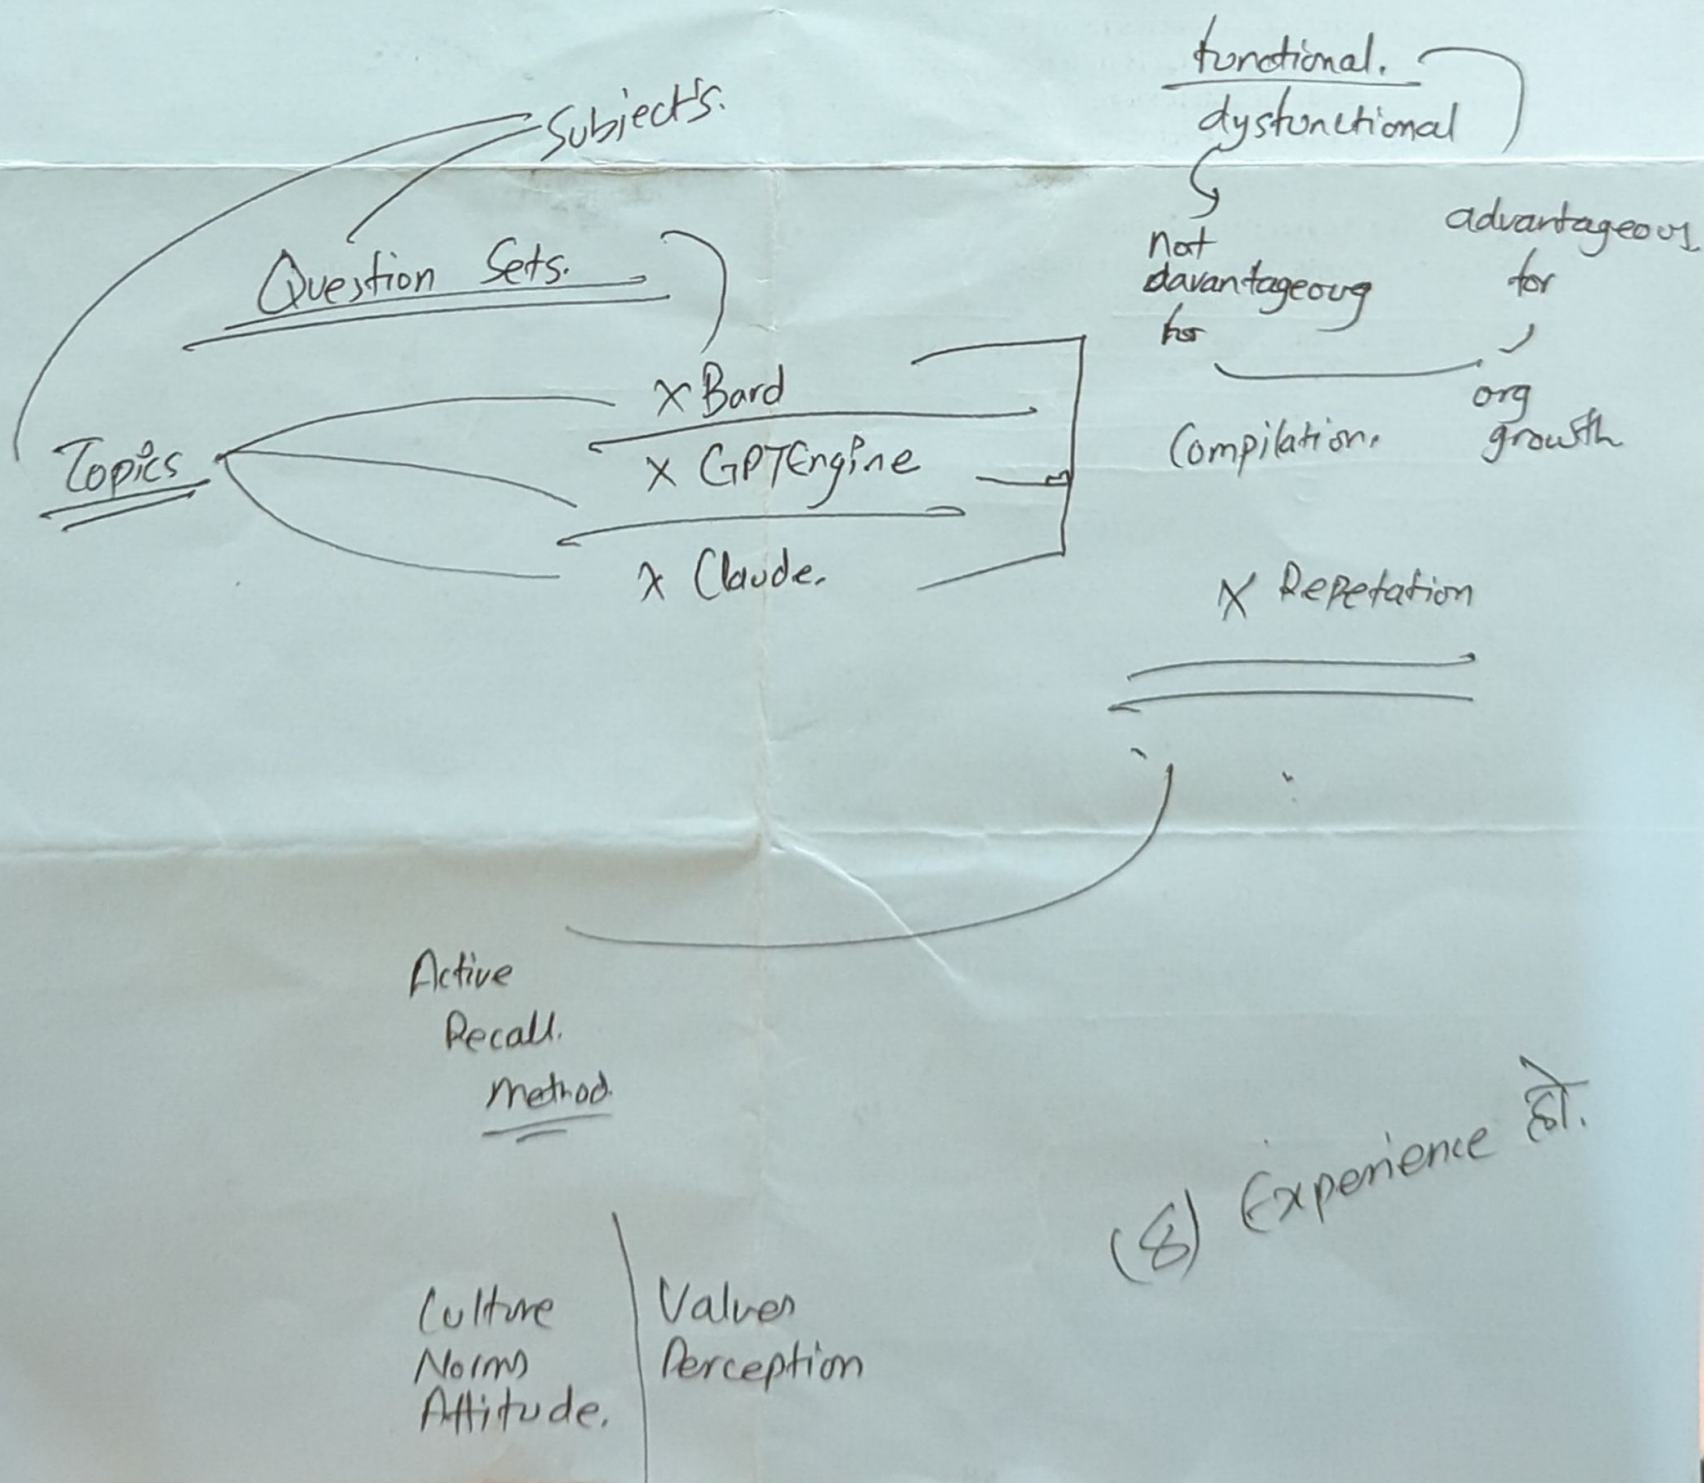 Subject's.
Question Sets.
Topics
x Bard
x GPTEngine
x Claude.
functional.
dysfunctional
not
davantageoug
for
advantageous
for
org
growth
Compilation.
x Repetation
Active
Recall.
Method.
(8) Experience हो.
Culture
Norms
Attitude.
Values
Perception